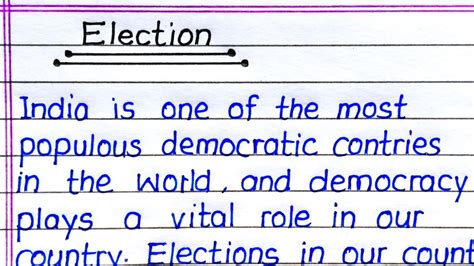 Election
India is one of the most
populous democratic contries
in the world, and democracy
plays a vital role in our
country. Elections in our count